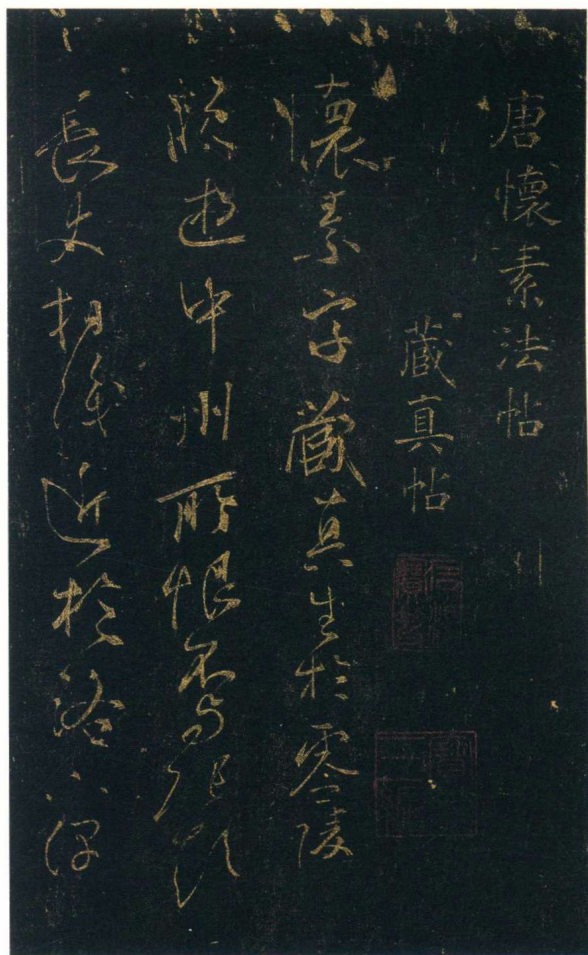 唐懷素法帖
藏真帖
懷素字藏真生於零陵
晚遊中州所恨不与張顛
長史相識近於洛下偶